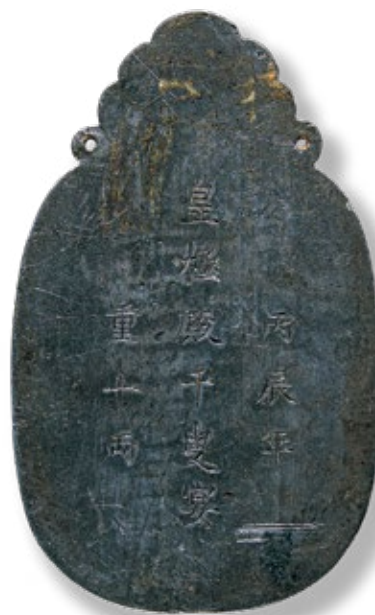 丙辰年
皇極殿千叟宴
重十兩